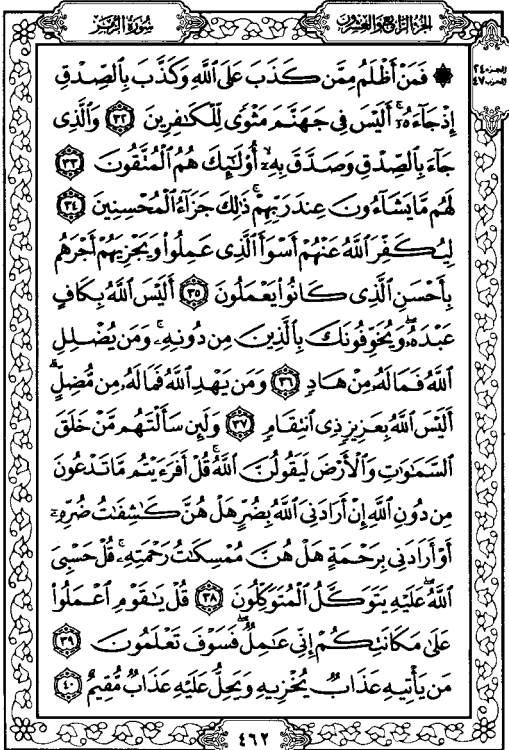 سورة الزمر
الجزء الرابع والعشرون
الجزء ٢٤
الحزب ٤٧
۞ فَمَنْ أَظْلَمُ مِمَّن كَذَبَ عَلَى ٱللَّهِ وَكَذَّبَ بِٱلصِّدْقِ
إِذْ جَآءَهُۥٓ ۚ أَلَيْسَ فِى جَهَنَّمَ مَثْوًى لِّلْكَـٰفِرِينَ ٣٢ وَٱلَّذِى
جَآءَ بِٱلصِّدْقِ وَصَدَّقَ بِهِۦٓ ۙ أُو۟لَـٰٓئِكَ هُمُ ٱلْمُتَّقُونَ ٣٣
لَهُم مَّا يَشَآءُونَ عِندَ رَبِّهِمْ ۚ ذَٰلِكَ جَزَآءُ ٱلْمُحْسِنِينَ ٣٤
لِيُكَفِّرَ ٱللَّهُ عَنْهُمْ أَسْوَأَ ٱلَّذِى عَمِلُوا۟ وَيَجْزِيَهُمْ أَجْرَهُم
بِأَحْسَنِ ٱلَّذِى كَانُوا۟ يَعْمَلُونَ ٣٥ أَلَيْسَ ٱللَّهُ بِكَافٍ
عَبْدَهُۥ ۖ وَيُخَوِّفُونَكَ بِٱلَّذِينَ مِن دُونِهِۦ ۚ وَمَن يُضْلِلِ
ٱللَّهُ فَمَا لَهُۥ مِنْ هَادٍ ٣٦ وَمَن يَهْدِ ٱللَّهُ فَمَا لَهُۥ مِن مُّضِلٍّ ۗ
أَلَيْسَ ٱللَّهُ بِعَزِيزٍ ذِى ٱنتِقَامٍ ٣٧ وَلَئِن سَأَلْتَهُم مَّنْ خَلَقَ
ٱلسَّمَـٰوَٰتِ وَٱلْأَرْضَ لَيَقُولُنَّ ٱللَّهُ ۚ قُلْ أَفَرَءَيْتُم مَّا تَدْعُونَ
مِن دُونِ ٱللَّهِ إِنْ أَرَادَنِىَ ٱللَّهُ بِضُرٍّ هَلْ هُنَّ كَـٰشِفَـٰتُ ضُرِّهِۦٓ
أَوْ أَرَادَنِى بِرَحْمَةٍ هَلْ هُنَّ مُمْسِكَـٰتُ رَحْمَتِهِۦ ۚ قُلْ حَسْبِىَ
ٱللَّهُ ۖ عَلَيْهِ يَتَوَكَّلُ ٱلْمُتَوَكِّلُونَ ٣٨ قُلْ يَـٰقَوْمِ ٱعْمَلُوا۟
عَلَىٰ مَكَانَتِكُمْ إِنِّى عَـٰمِلٌ ۖ فَسَوْفَ تَعْلَمُونَ ٣٩
مَن يَأْتِيهِ عَذَابٌ يُخْزِيهِ وَيَحِلُّ عَلَيْهِ عَذَابٌ مُّقِيمٌ ٤٠
٤٦٢